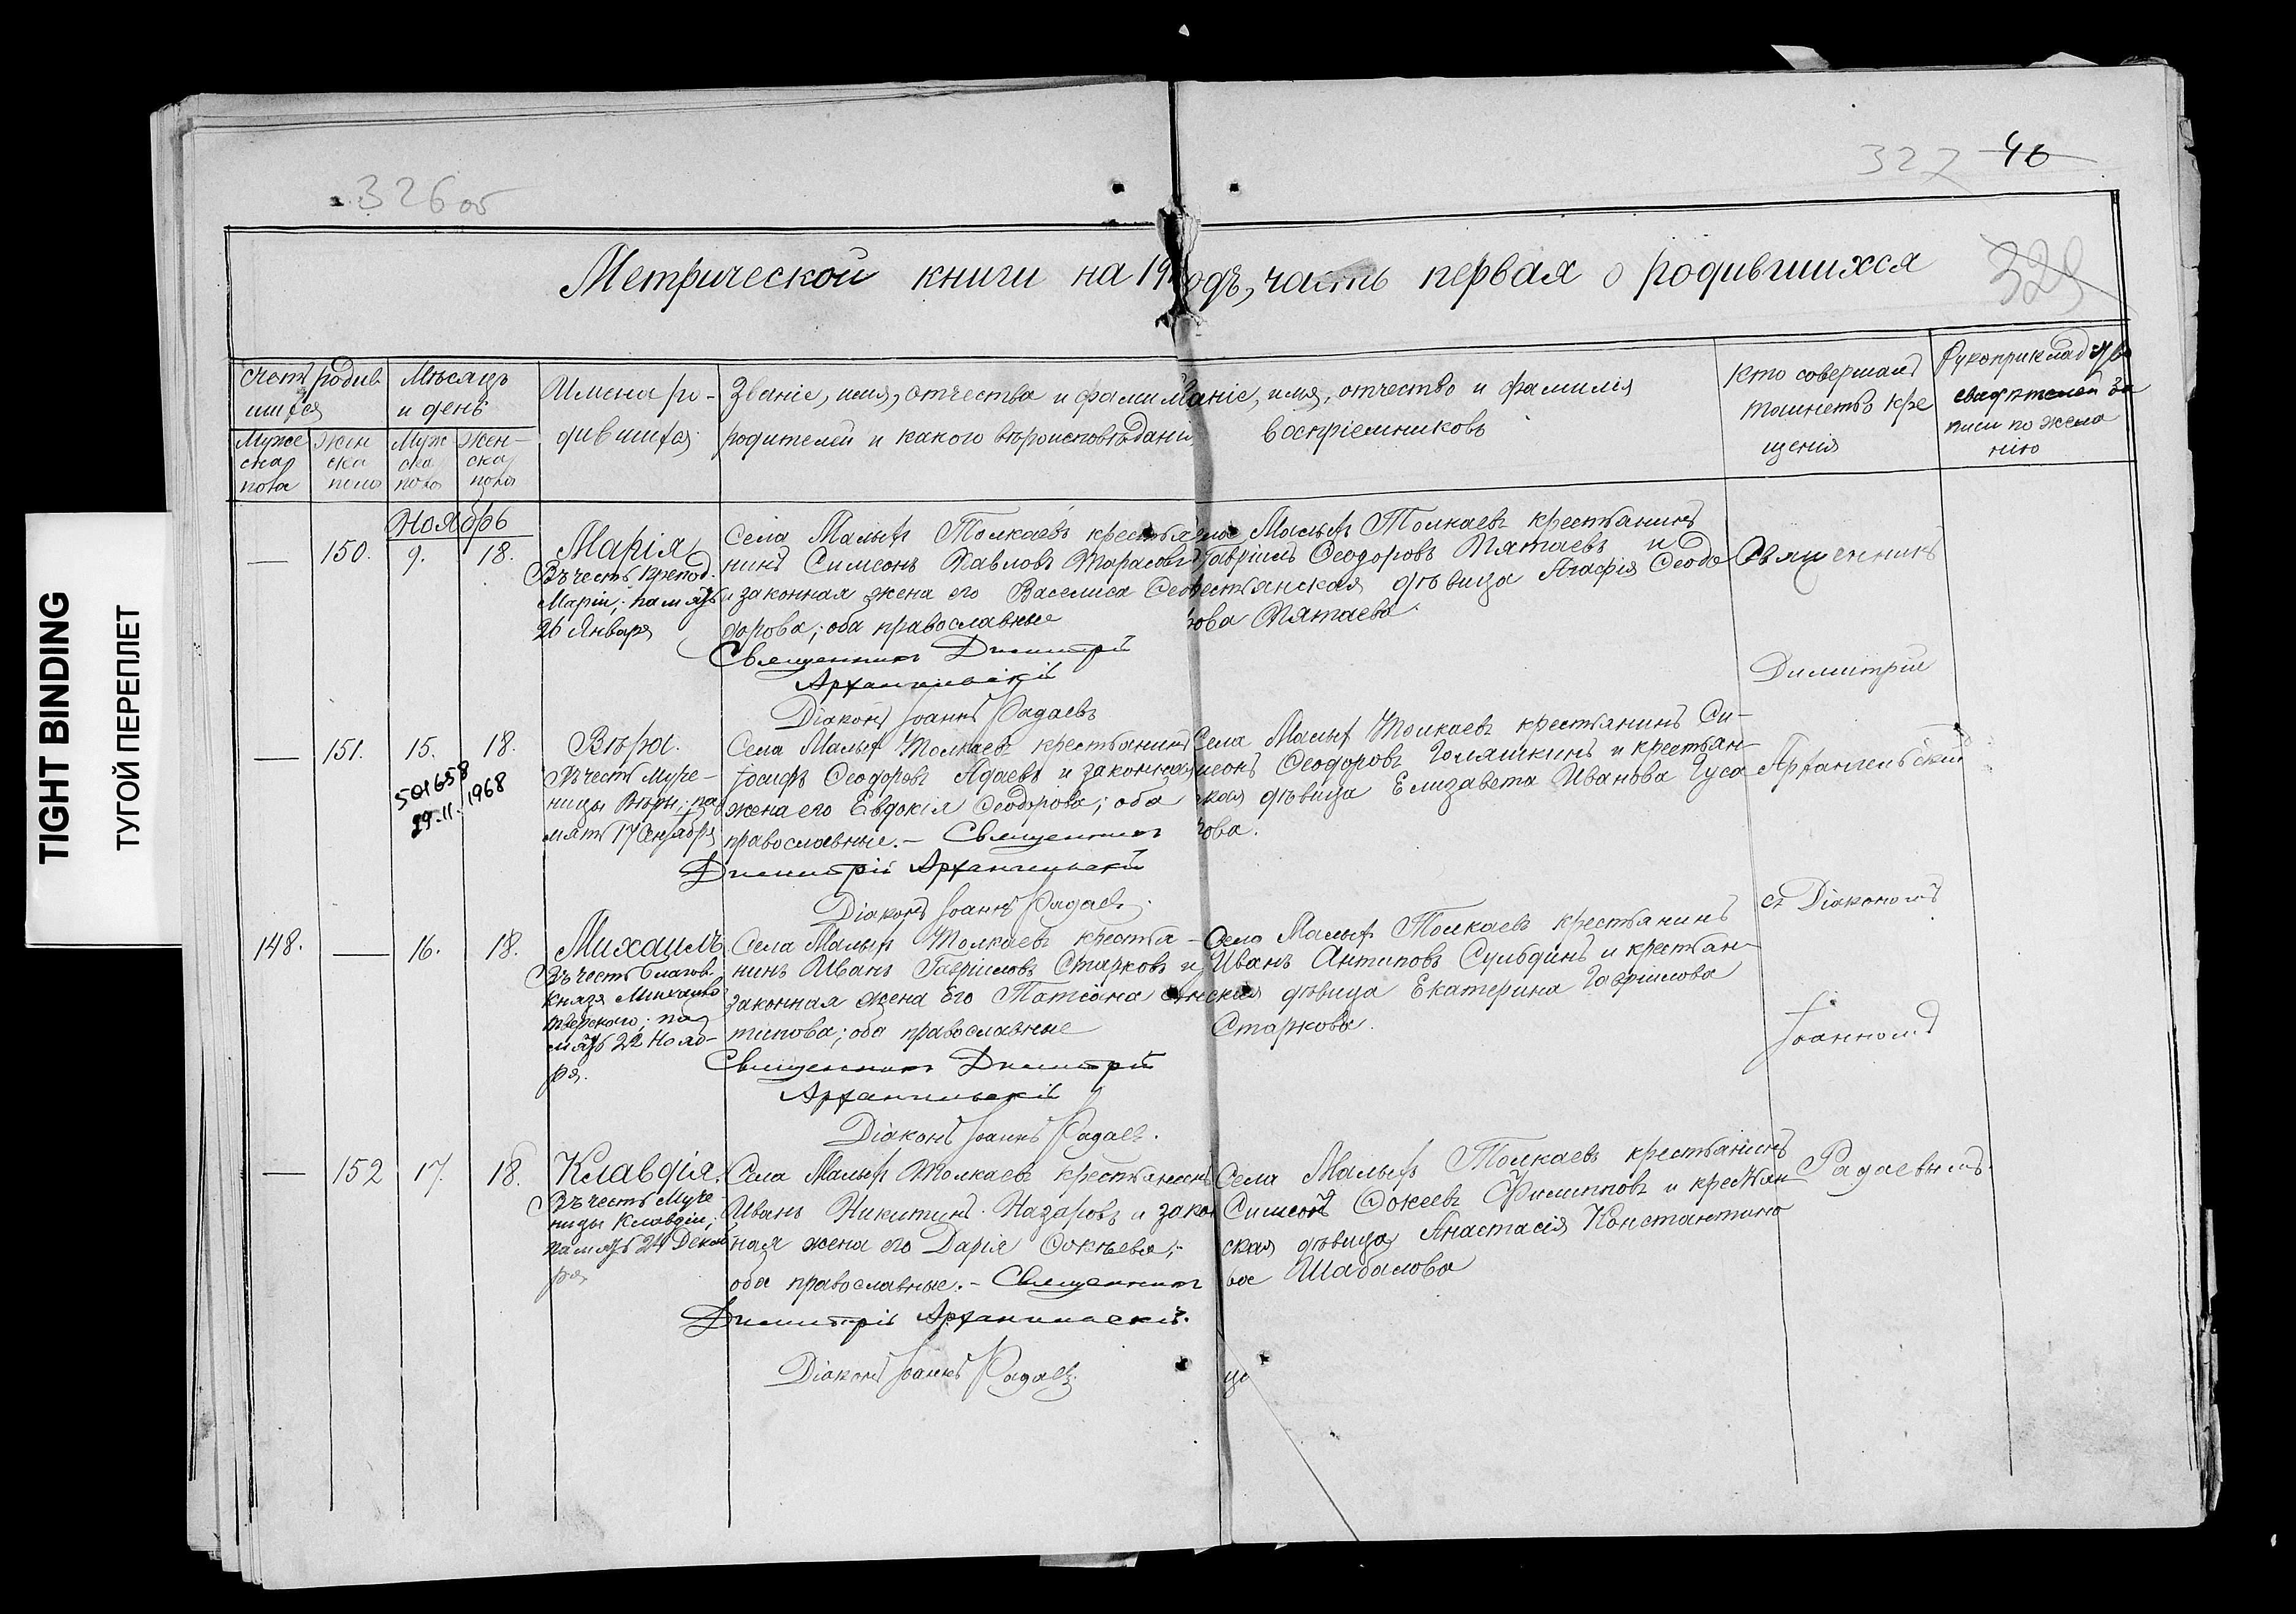 TIGHT BINDING
ТУГОЙ ПЕРЕПЛЕТ
326 об
327 40
329
Метрической книги на 19 одъ, часть первая о родившихся
Счетъ родив
шихся
Мѣсяцъ
и день
Мужс
каго
пола
Жен
ска
пола
Муж
ска
пола
Жен-
ска
пола
Имена ро-
дившихся
Званіе, имя, отчество и фамил
родителей и какого вѣроисповѣдані
Званіе, имя, отчество и фамилія
воспріемниковъ
Кто совершалъ
таинство кре
щенія
Рукоприкладство
свидѣтелей за
писи по жела
нію
Ноябрь
— 150. 9. 18.
Марія
Въ честь препод.
Маріи; память
26 Января
Села Малыхъ Толкаевъ крестья
нинъ Симеонъ Павловъ Тарасовъ
и законная жена его Васелиса Ѳео
дорова; оба православные
Священникъ Димитрій
Архангельскій
Діаконъ Іоаннъ Радаевъ
Села Малыхъ Толкаевъ крестьянинъ
Гавріилъ Ѳеодоровъ Пятаевъ и
крестьянская дѣвица Агафія Ѳеодо
рова Пятаева.
Священникъ
Димитрій
Архангельскій
съ Діакономъ
Іоанномъ
Радаевымъ.
— 151. 15. 18.
501658
29-11-1968
Вѣра.
Въ честь муче-
ницы Вѣры; па
мять 17 Сентября
Села Малыхъ Толкаевъ крестьянинъ
Іосифъ Ѳеодоровъ Адаевъ и законная
жена его Евдокія Ѳеодорова; оба
православные.— Священникъ
Димитрій Архангельскій
Діаконъ Іоаннъ Радаевъ.
Села Малыхъ Толкаевъ крестьянинъ Си-
меонъ Ѳеодоровъ Голяшкинъ и крестьян-
ская дѣвица Елизавета Иванова Гуса
рова.
148. — 16. 18.
Михаилъ
Въ честь благов.
Князя Михаила
Тверского; па
мять 22 Нояб-
ря.
Села Малыхъ Толкаевъ крестья-
нинъ Иванъ Гавріиловъ Старковъ и
законная жена его Татіана Ан
типова; оба православные
Священникъ Димитрій
Архангельскій
Діаконъ Іоаннъ Радаевъ.
Села Малыхъ Толкаевъ крестьянинъ
Иванъ Антиповъ Сульдинъ и крестьян-
ская дѣвица Екатерина Гавріилова
Старкова.
— 152 17. 18.
Клавдія.
Въ честь Муче
ницы Клавдіи;
память 24 Декаб
ря
Села Малыхъ Толкаевъ крестьянинъ
Иванъ Никитинъ Назаровъ и закон
ная жена его Дарія Ѳокѣева;
оба православные.— Священникъ
Димитрій Архангельскій.
Діаконъ Іоаннъ Радаевъ.
Села Малыхъ Толкаевъ крестьянинъ
Симеонъ Ѳокеевъ Филипповъ и крестьян
ская дѣвица Анастасія Константино
ва Шабалова